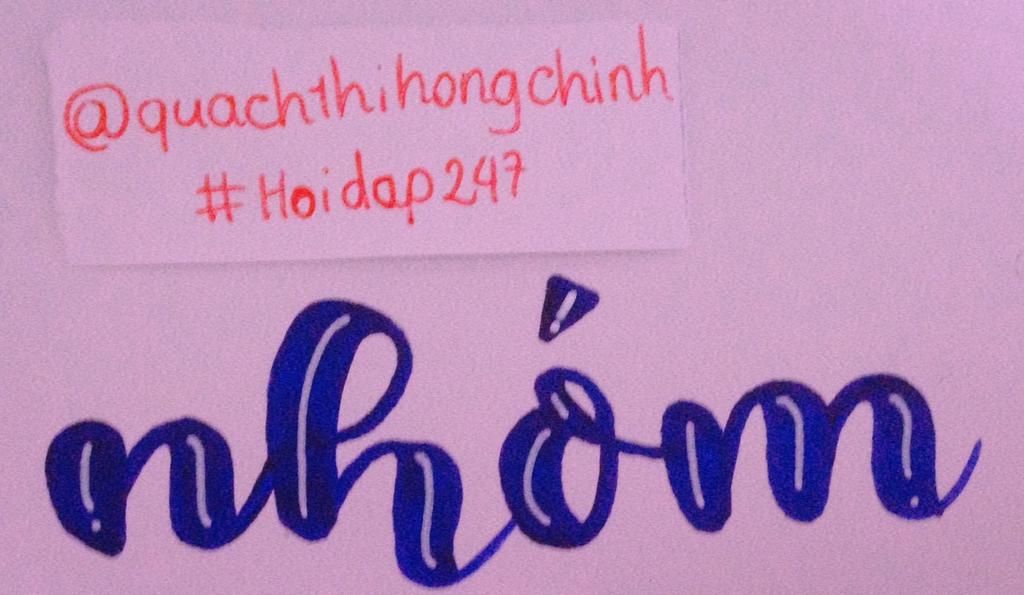 @quachthihongchinh
#Hoidap247
nhóm